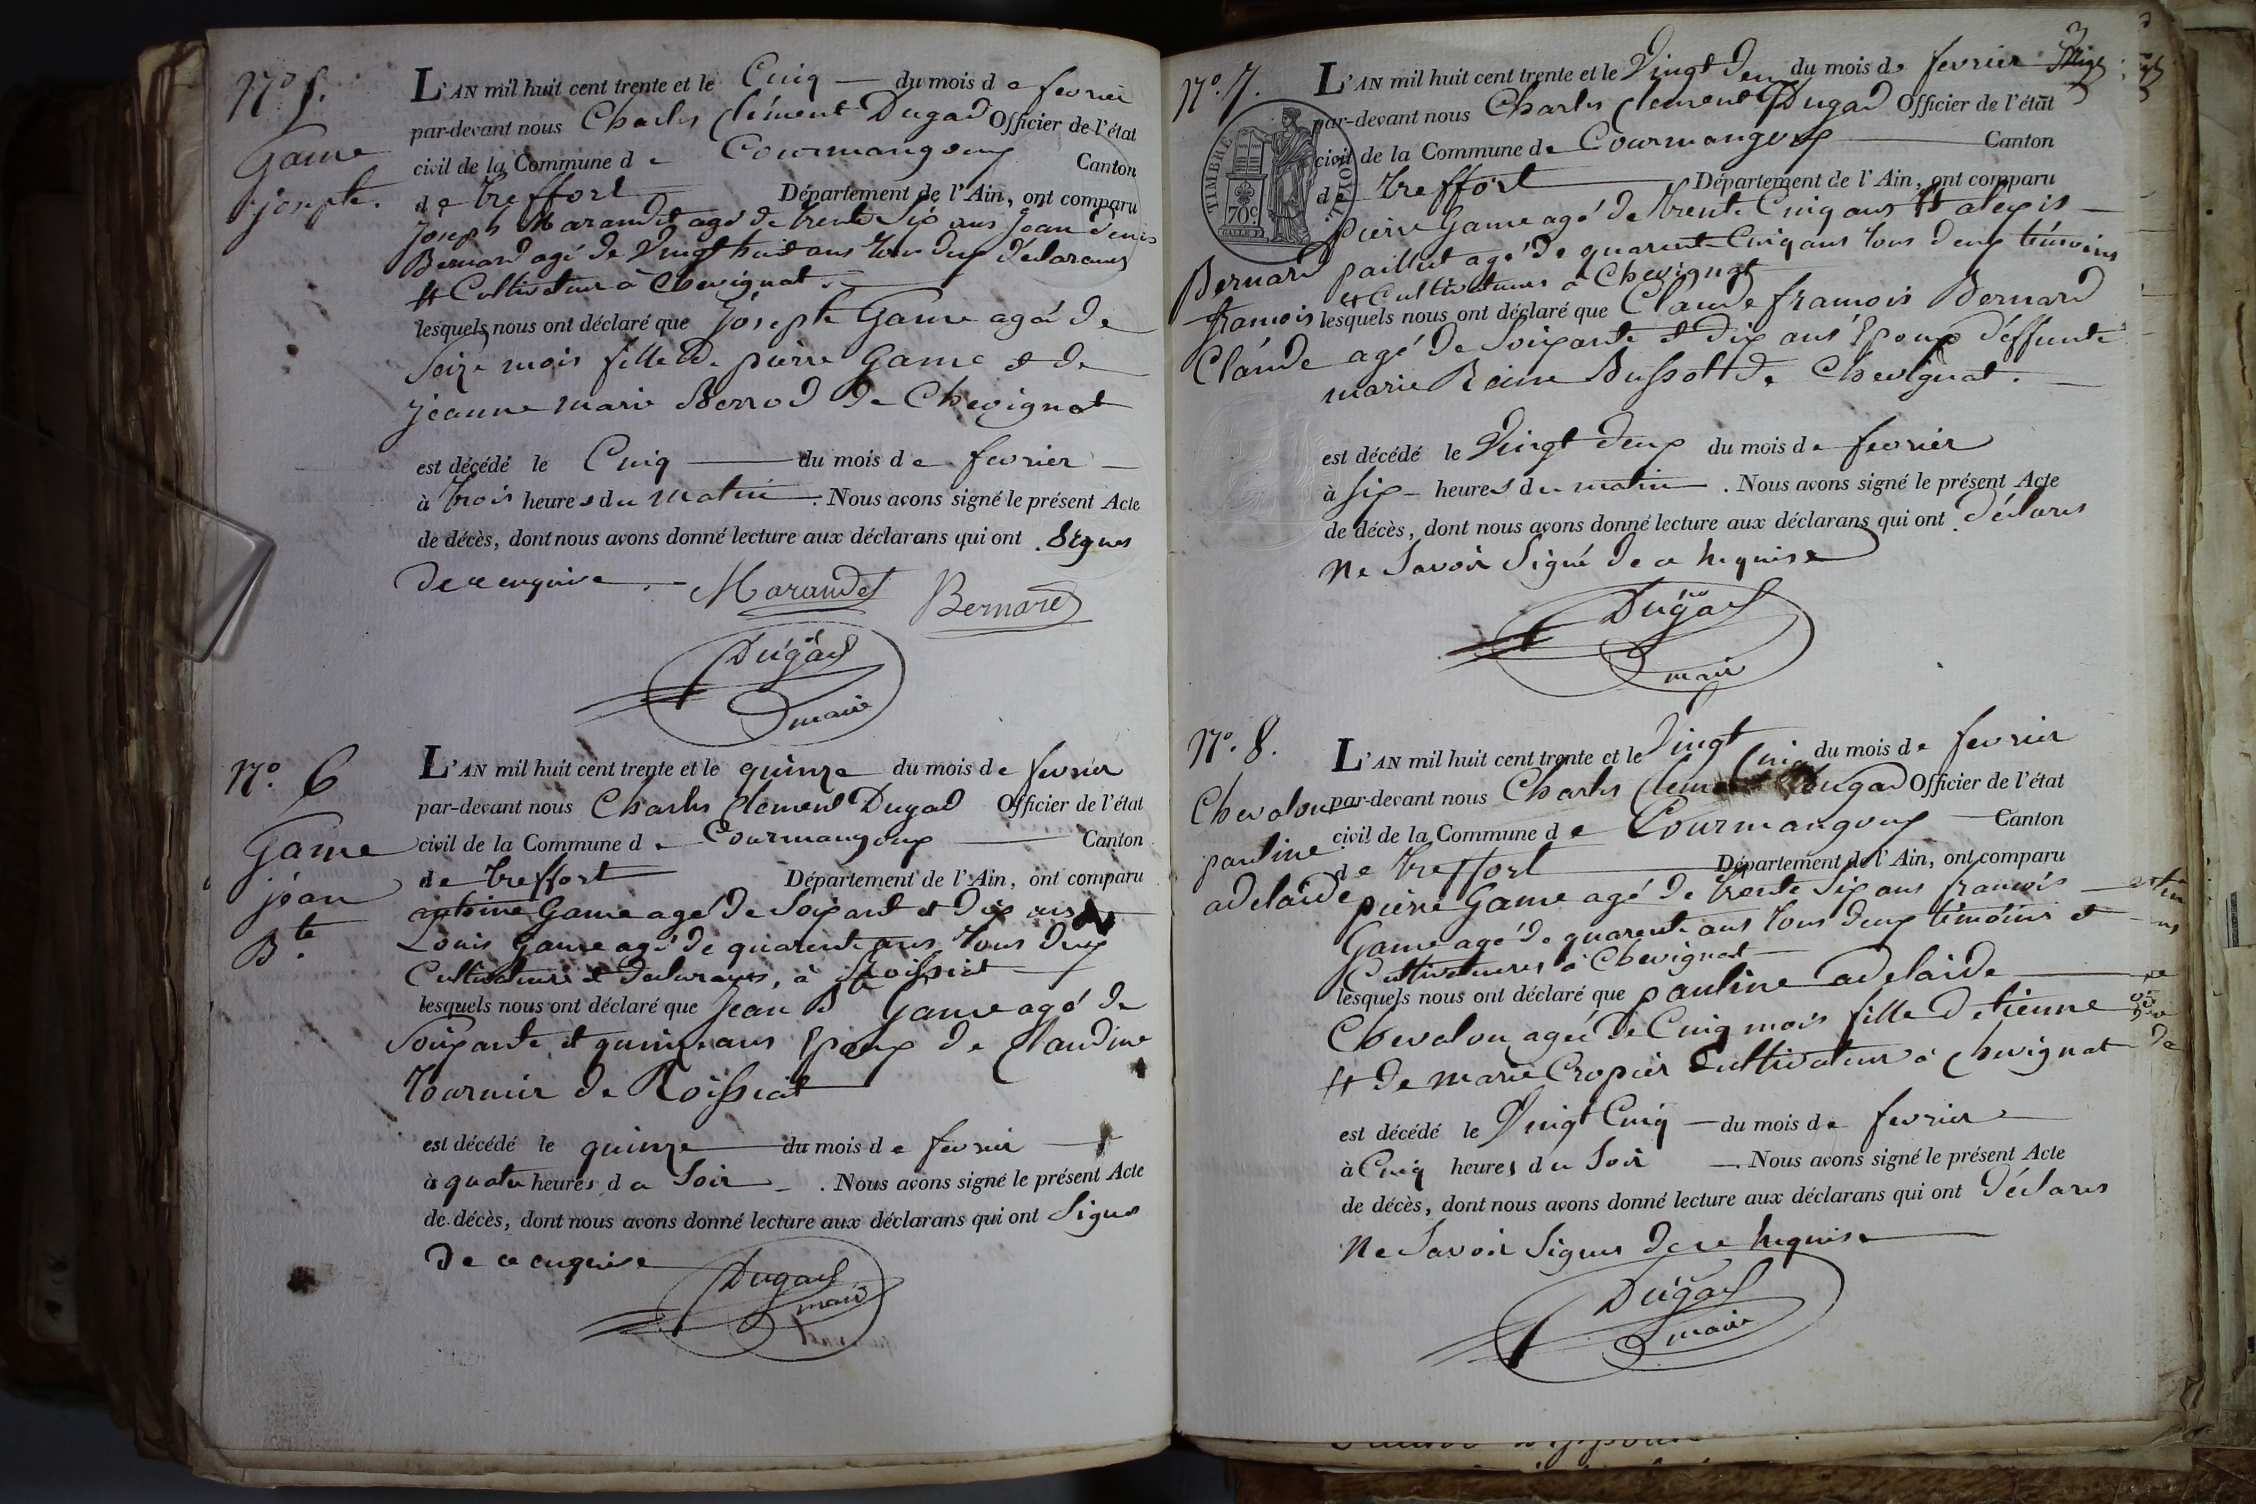 N° 5.
Game
joseph.
L'AN mil huit cent trente et le Cinq du mois de fevrier
par-devant nous Charles Clément Dugad Officier de l'état
civil de la Commune de Courmangoux Canton
de treffort Département de l'Ain, ont comparu
joseph Marandet agé de trente Six ans jean denis
Bernard agé de Vingt huit ans tous deux déclarans
et Cultivateurs à Chevignat.
lesquels nous ont déclaré que joseph Game agé de
Seize mois fille de pierre Game et de
jeanne marie Berrod de Chevignat
est décédé le Cinq du mois de fevrier
à trois heures du matin. Nous avons signé le présent Acte
de décès, dont nous avons donné lecture aux déclarans qui ont Signes
de ce enquise. Marandet Bernard
Dugad
maire
N° 6
Game
jean
Bte.
L'AN mil huit cent trente et le quinze du mois de fevrier
par-devant nous Charles Clement Dugad Officier de l'état
civil de la Commune de Courmangoux Canton
de treffort Département de l'Ain, ont comparu
antoine Game agé de Soixant et dix ans
Louis Game agé de quarente ans tous deux
Cultivateurs et declarants, à Roissiat
lesquels nous ont déclaré que Jean B Game agé de
Soixante et quinze ans Epoux de Claudine
tournier de Roissiat
est décédé le quinze du mois de fevrier
à quatre heures du Soir. Nous avons signé le présent Acte
de décès, dont nous avons donné lecture aux déclarans qui ont Signe
de ce enquise
Dugad
maire
N° 7.
Bernard
françois
Claude
L'AN mil huit cent trente et le Vingt deux du mois de fevrier
par-devant nous Charles Clement Dugad Officier de l'état
civil de la Commune de Courmangoux Canton
de treffort Département de l'Ain, ont comparu
TIMBRE ROYAL
70c
pierre Game agé de trente Cinq ans et alexis
paillet agé de quarente Cinq ans tous deux témoins
et Cultivateurs à Chevignat
lesquels nous ont déclaré que Claude françois Bernard
agé de Soixante et dix ans Epoux d'éffunte
marie Reine Bussott de Chevignat.
est décédé le Vingt deux du mois de fevrier
à Six heures du matin. Nous avons signé le présent Acte
de décès, dont nous avons donné lecture aux déclarans qui ont déclares
Ne Savoir Signé de ce requise
Dugad
maire
N° 8.
Chevalon
pauline
adelaide
L'AN mil huit cent trente et le Vingt Cinq du mois de fevrier
par-devant nous Charles Clement Dugad Officier de l'état
civil de la Commune de Courmangoux Canton
de treffort Département de l'Ain, ont comparu
pierre Game agé de trente Six ans françois
Game agé de quarente ans tous deux témoins et
Cultivateures à Chevignat
lesquels nous ont déclaré que pauline adelaide
Chevalon ageé de Cinq mois fille detienne
et de marie Cropier Cultivateur à Chevignat
est décédé le Vingt Cinq du mois de fevrier
à Cinq heures du Soir. Nous avons signé le présent Acte
de décès, dont nous avons donné lecture aux déclarans qui ont déclares
Ne Savoir Signer de ce requise
Dugad
maire